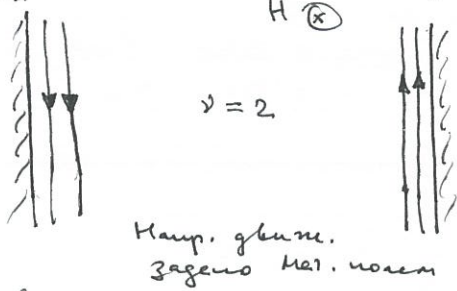 H ⓧ
ν = 2
Напр. движ.
задано маг. полем